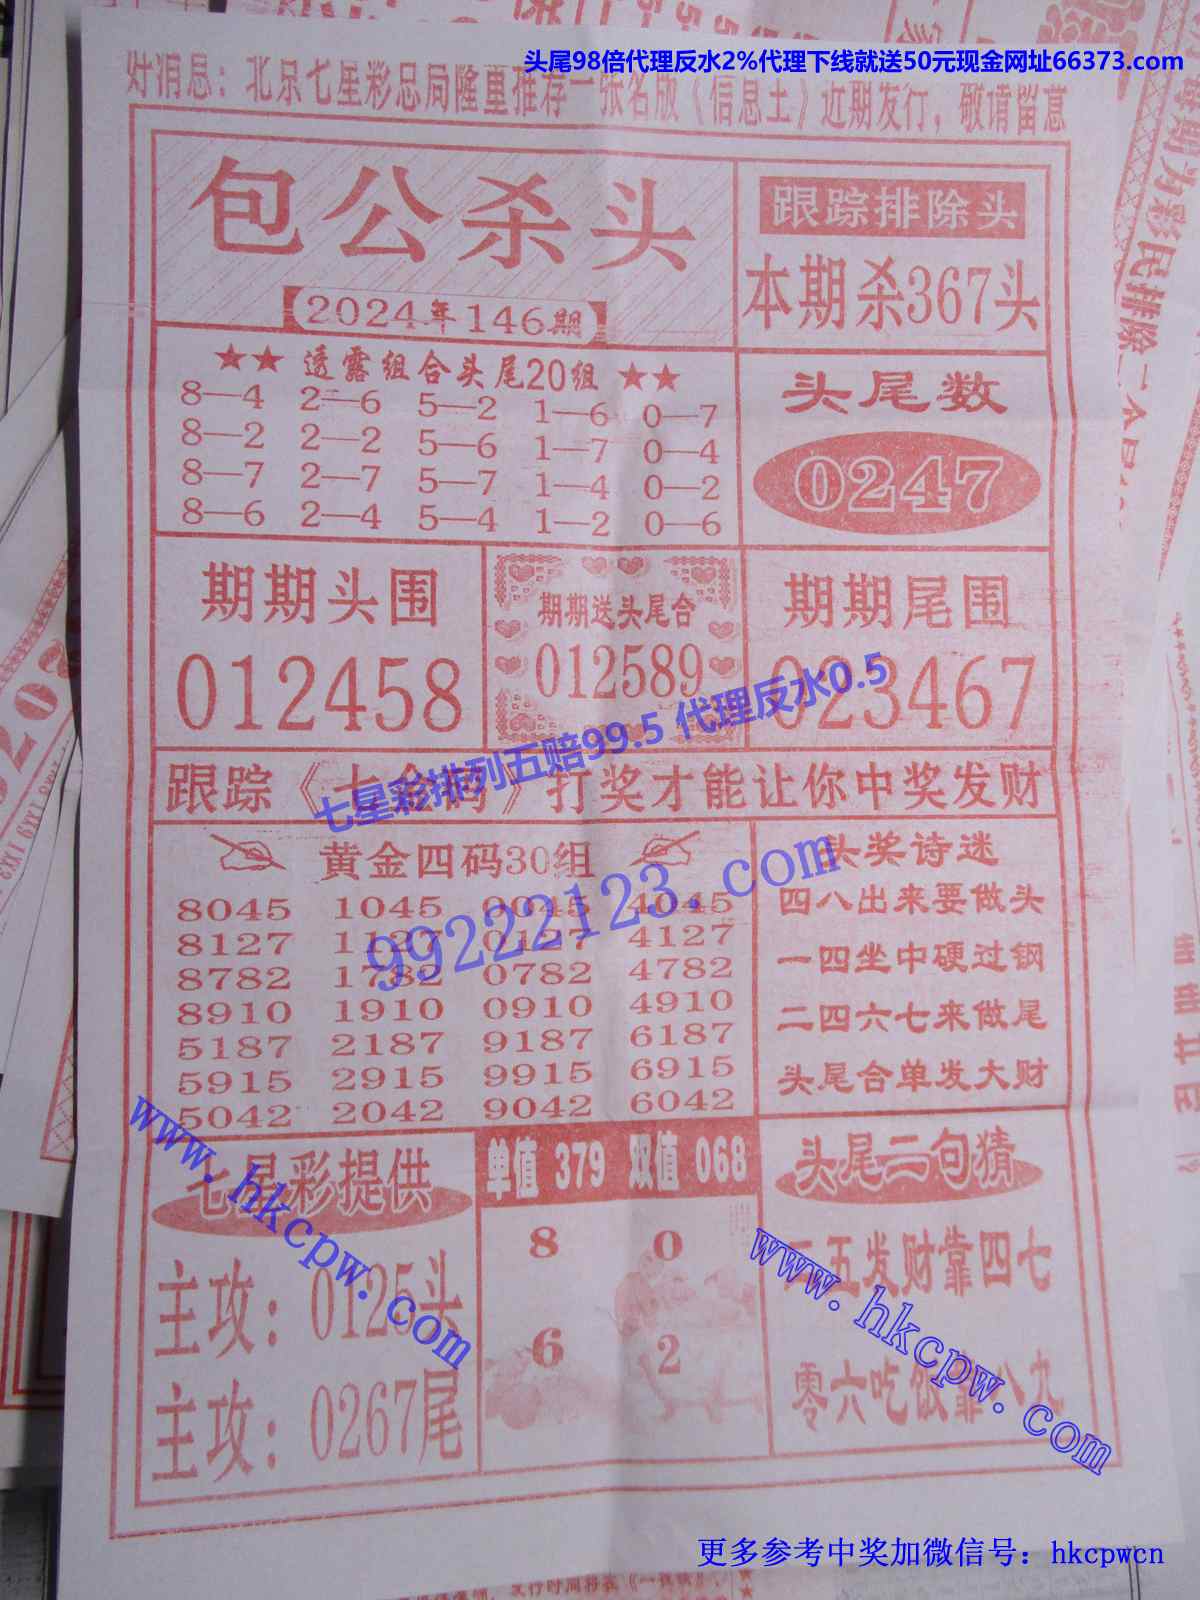 头尾98倍代理反水2%代理下线就送50元现金网址66373.com
好消息：北京七星彩总局隆重推荐一张名版《信息王》近期发行，敬请留意
包公杀头
【2024年146期】
跟踪排除头
本期杀367头
★★ 透露组合头尾20组 ★★
8—4 2—6 5—2 1—6 0—7
8—2 2—2 5—6 1—7 0—4
8—7 2—7 5—7 1—4 0—2
8—6 2—4 5—4 1—2 0—6
头尾数
0247
期期头围
012458
期期送头尾合
012589
期期尾围
023467
七星彩排列五赔99.5 代理反水0.5
跟踪《七金码》打奖才能让你中奖发财
黄金四码30组
8045 1045 0045 4045
8127 1127 0127 4127
8782 1782 0782 4782
8910 1910 0910 4910
5187 2187 9187 6187
5915 2915 9915 6915
5042 2042 9042 6042
99222123.com
头奖诗迷
四八出来要做头
一四坐中硬过钢
二四六七来做尾
头尾合单发大财
七星彩提供
主攻：0125头
主攻：0267尾
www.hkcpw.com
单值 379 双值 068
8 0
6 2
头尾二句猜
五发财靠四七
零六吃饭靠八九
www.hkcpw.com
更多参考中奖加微信号：hkcpwcn